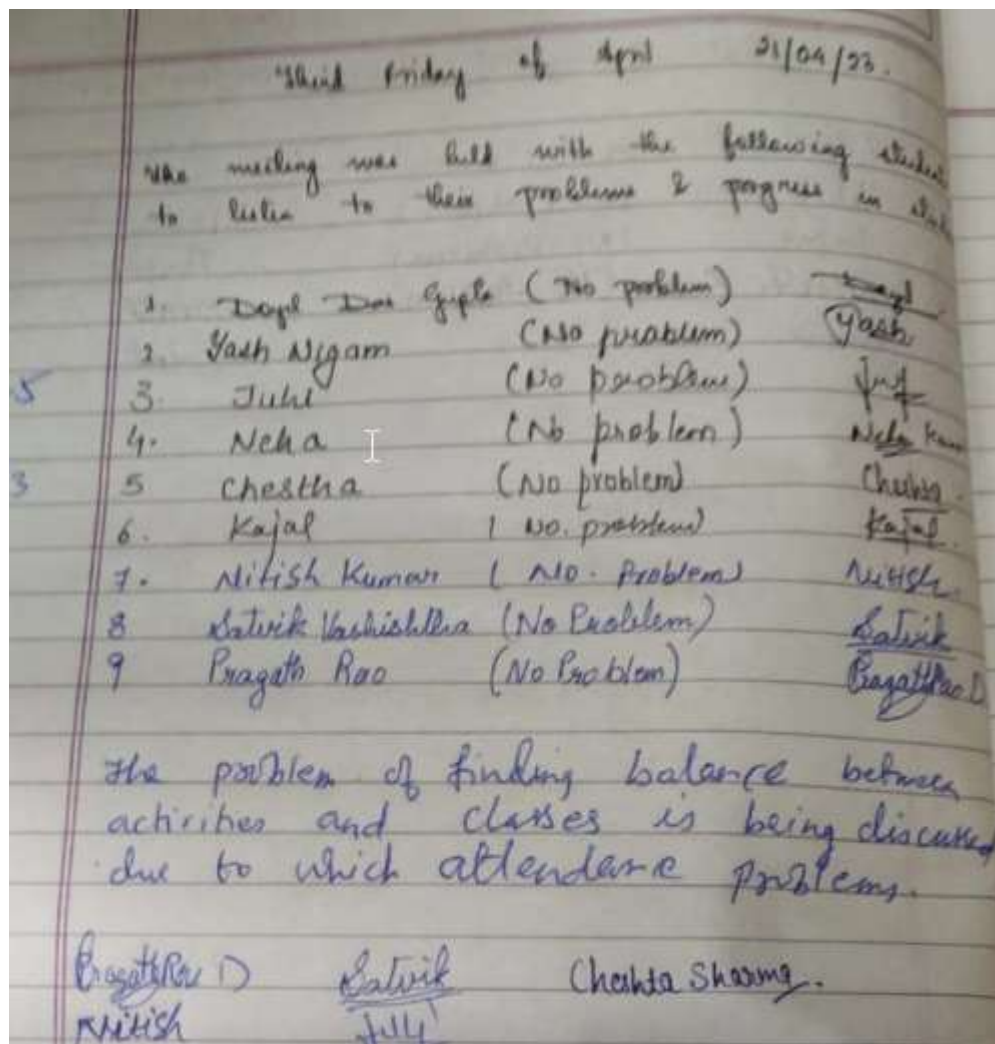 Third Friday of April 21/04/23.
The meeting was held with the following students
to listen to their problems & progress in
1. Dayl Das Gupta (No problem) Dayl
2. Yash Nigam (No problem) Yash
3. Juhi (No problem)
4. Neha (No problem) Neha Kum
5 Chestha (No problem) Cheshta.
6. Kajal ( No. problem) Kajal.
7. Nitish Kumar ( No. Problem) Nitish.
8 Satvik Vashishtha (No Problem) Satvik
9 Pragath Rao (No Problem) Pragath Rao D
5
3
The problem of finding balance between
activities and classes is being discussed
due to which attendance problems.
Pragath Rao D Satvik Cheshta Sharma.
Nitish Juhi